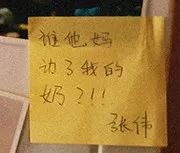 谁他妈
动了我的
奶?!!
张伟